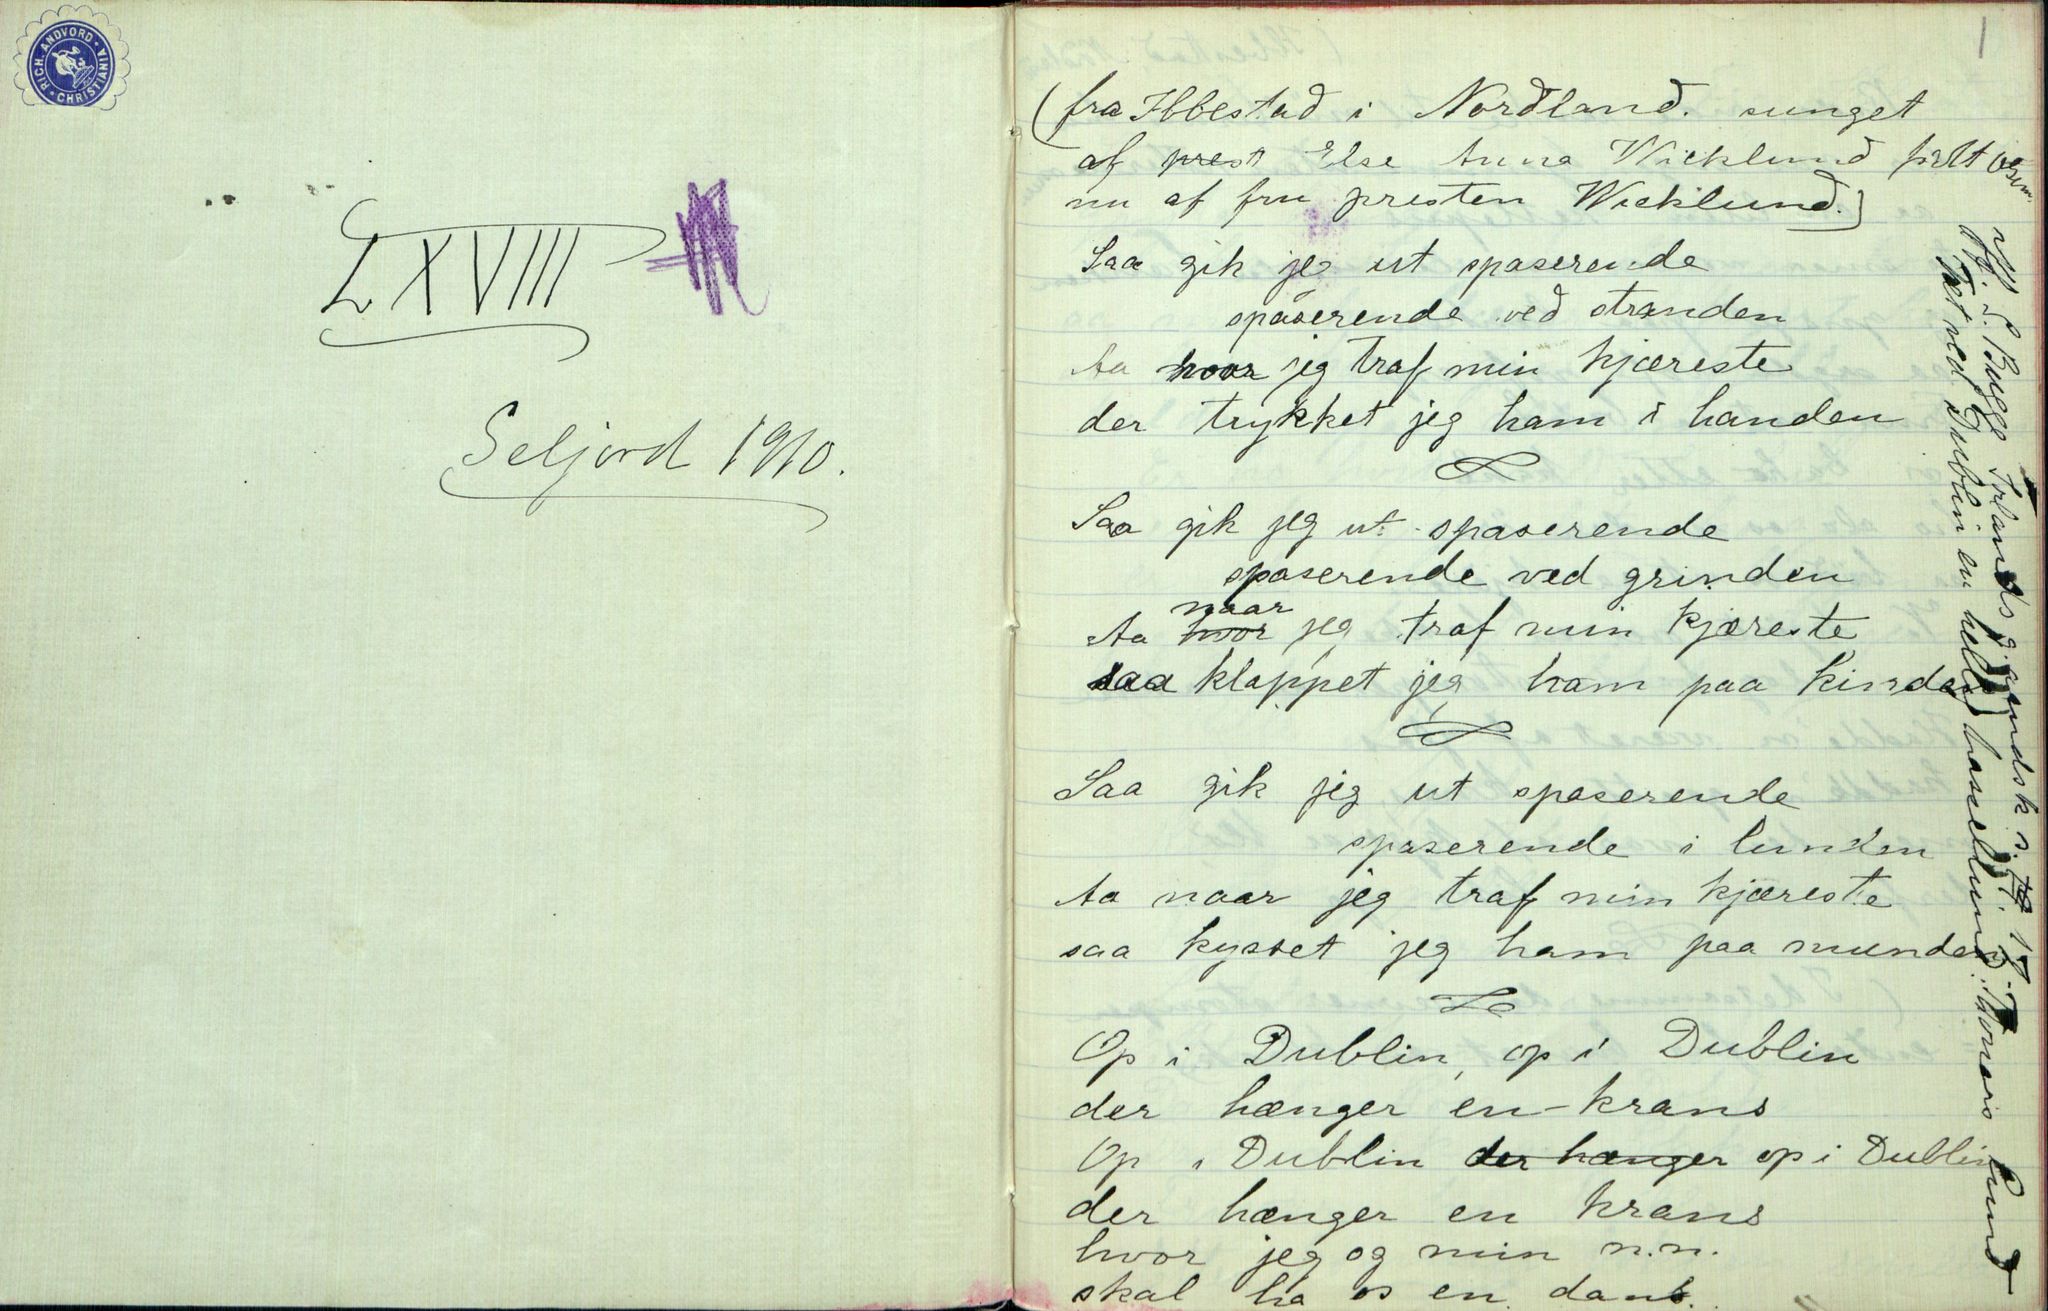 RICH. ANDVORD • CHRISTIANIA •
LXVIII
Seljord 1910.
1
(fra Ibbestad i Nordland. sunget
af prest Else Anna Wicklund
nu af fru presten Wicklund.)
Saa gik jeg ut spaserende
spaserende ved stranden
Aa hvor jeg traf min kjæreste
der trykket jeg ham i handen
Saa gik jeg ut spaserende
spaserende ved grinden
naar
Aa hvor jeg traf min kjæreste
saa klappet jeg ham paa kinden
Saa gik jeg ut spaserende
spaserende i lunden
Aa naar jeg traf min kjæreste
saa kysset jeg ham paa munden
Op i Dublin, op i Dublin
der hænger en krans
Op i Dublin der hænger op i Dublin
der hænger en krans
hvor jeg og min n.n.
skal ha os en dans.
S. Bugge Irlands
Tæt ved Dublin en hellig hassellund. Thonars Lund